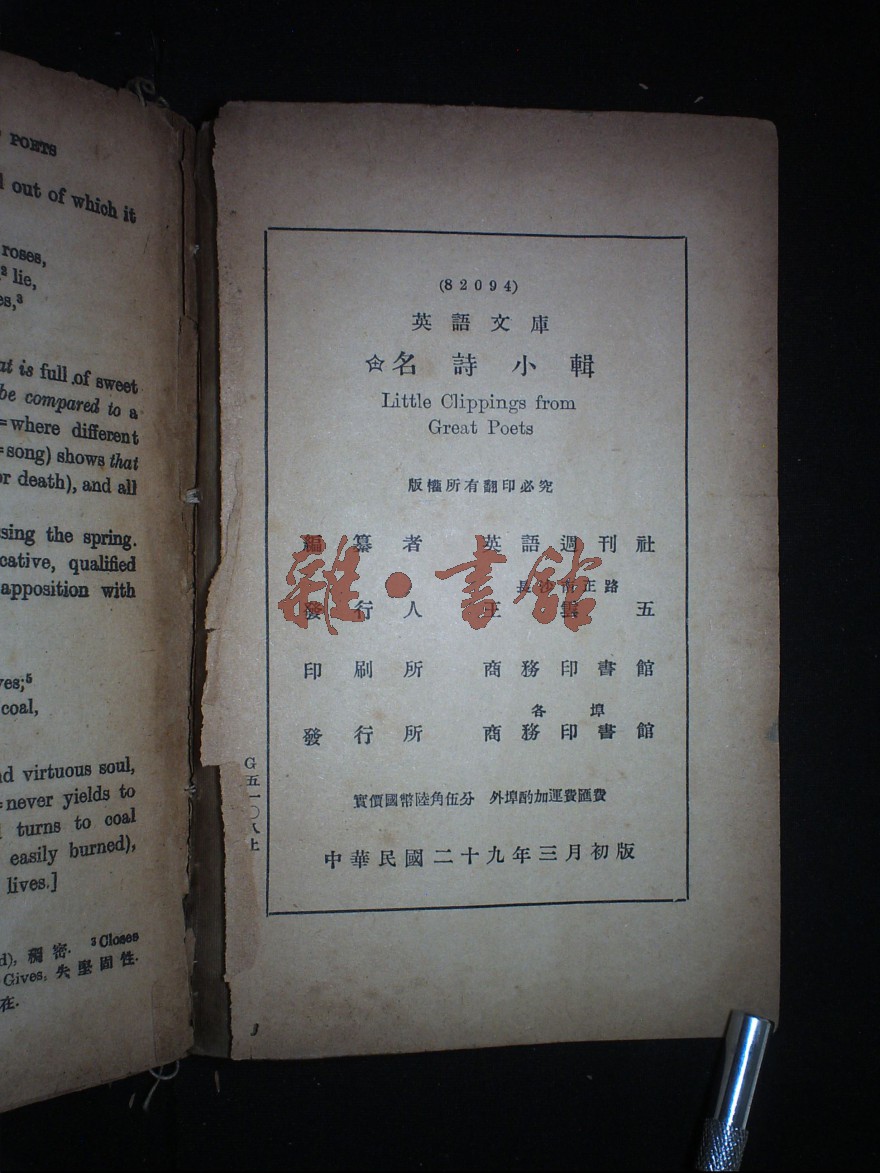 POETS
out of which it
roses,
² lie,
es,³
at is full of sweet
be compared to a
=where different
=song) shows that
or death), and all
sing the spring.
cative, qualified
apposition with
ves;⁵
coal,
nd virtuous soul,
=never yields to
turns to coal
easily burned),
lives.]
d), 稠密. ³ Closes
Gives, 失堅固性.
在.
(82094)
英語文庫
名詩小輯
Little Clippings from
Great Poets
版權所有翻印必究
編纂者 英語週刊社
長沙南正路
發行人 王雲五
印刷所 商務印書館
各埠
發行所 商務印書館
實價國幣陸角伍分 外埠酌加運費匯費
中華民國二十九年三月初版
G五一〇八上
雜·書館